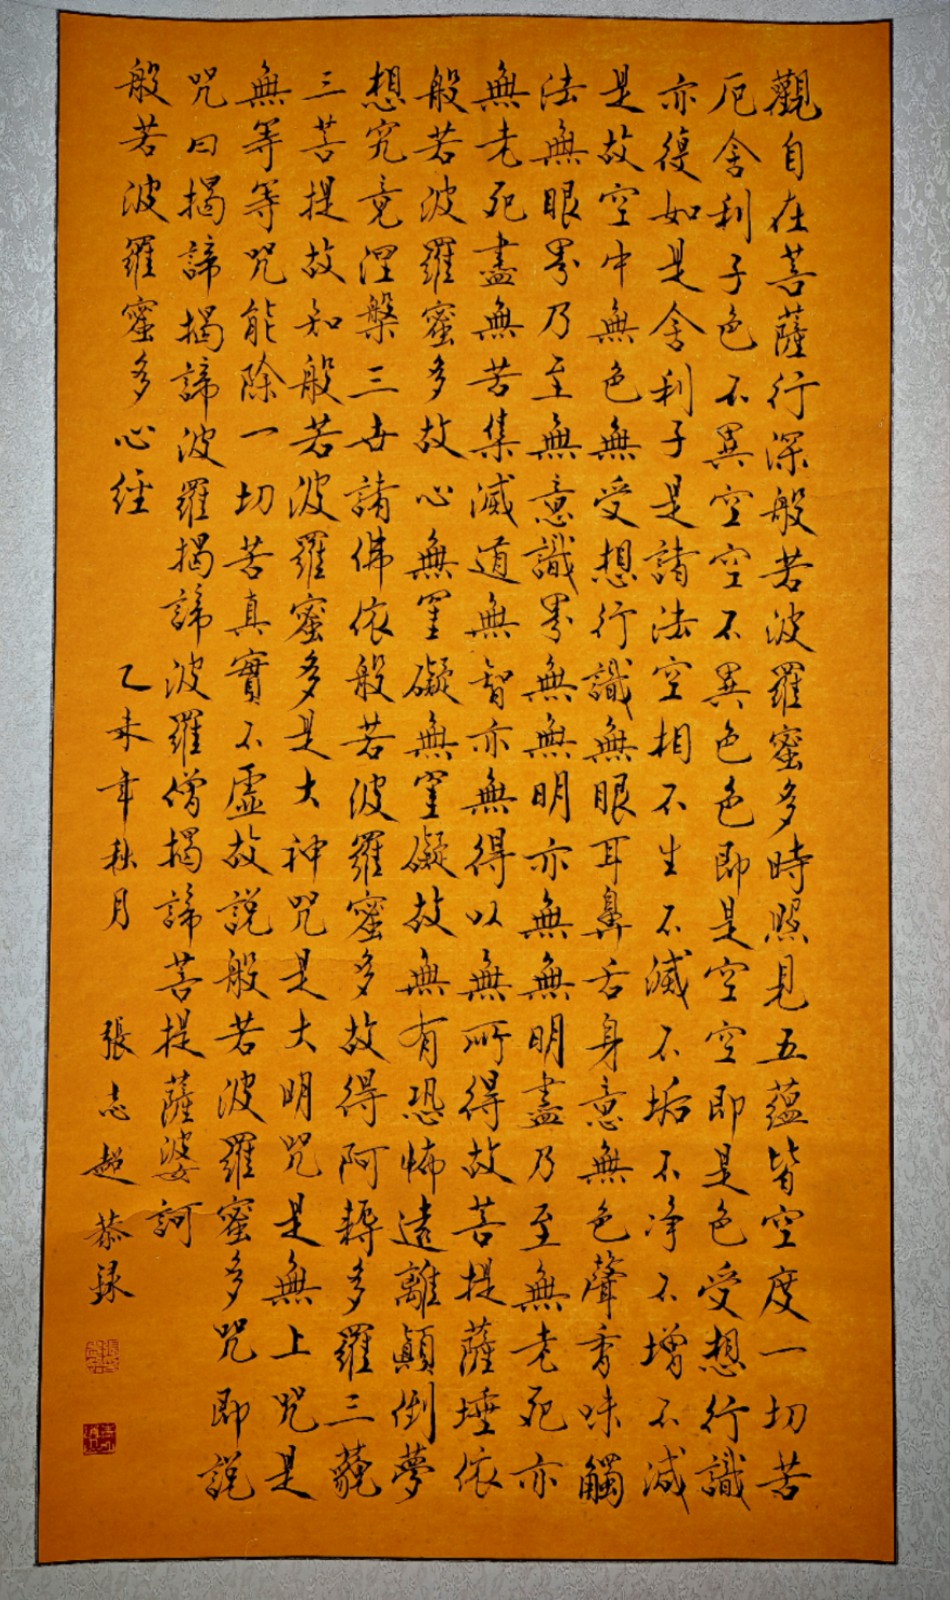 觀自在菩薩行深般若波羅蜜多時照見五蘊皆空度一切苦
厄舍利子色不異空空不異色色即是空空即是色受想行識
亦復如是舍利子是諸法空相不生不滅不垢不净不增不減
是故空中無色無受想行識無眼耳鼻舌身意無色聲香味觸
法無眼界乃至無意識界無無明亦無無明盡乃至無老死亦
無老死盡無苦集滅道無智亦無得以無所得故菩提薩埵依
般若波羅蜜多故心無罣礙無罣礙故無有恐怖遠離顛倒夢
想究竟涅槃三世諸佛依般若波羅蜜多故得阿耨多羅三藐
三菩提故知般若波羅蜜多是大神咒是大明咒是無上咒是
無等等咒能除一切苦真實不虛故說般若波羅蜜多咒即說
咒曰揭諦揭諦波羅揭諦波羅僧揭諦菩提薩婆訶
般若波羅蜜多心經
乙未年秋月 張志超 恭録